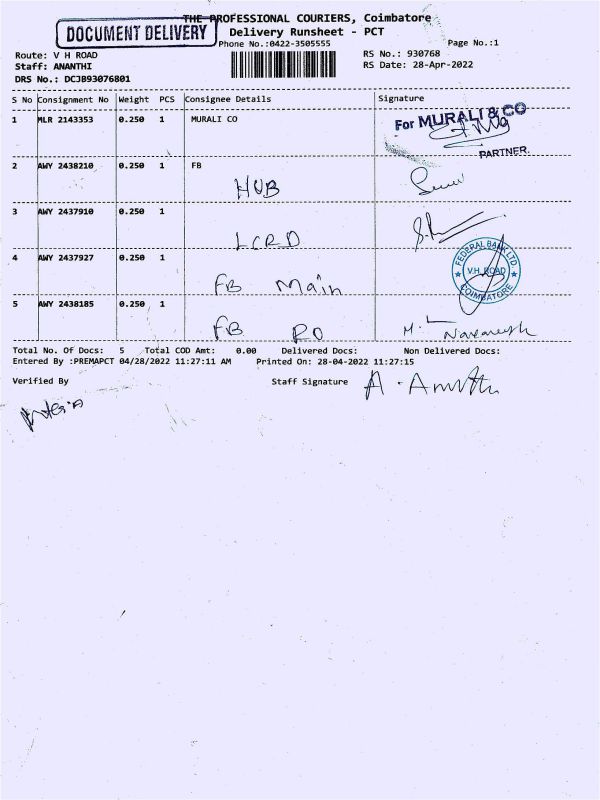 THE PROFESSIONAL COURIERS, Coimbatore
DOCUMENT DELIVERY
Delivery Runsheet - PCT
Phone No.:0422-3505555
Page No.:1
Route: V H ROAD
RS No.: 930768
Staff: ANANTHI
RS Date: 28-Apr-2022
DRS No.: DCJB93076801
S No Consignment No Weight PCS Consignee Details Signature
1 MLR 2143353 0.250 1 MURALI CO
For MURALI & CO
PARTNER.
2 AWY 2438210 0.250 1 FB
HUB
3 AWY 2437910 0.250 1
LCRD
FEDERAL BANK LTD.
V.H. ROAD
COIMBATORE
4 AWY 2437927 0.250 1
FB Main
5 AWY 2438185 0.250 1
FB RO
Total No. Of Docs: 5 Total COD Amt: 0.00 Delivered Docs: Non Delivered Docs:
Entered By :PREMAPCT 04/28/2022 11:27:11 AM Printed On: 28-04-2022 11:27:15
Verified By Staff Signature